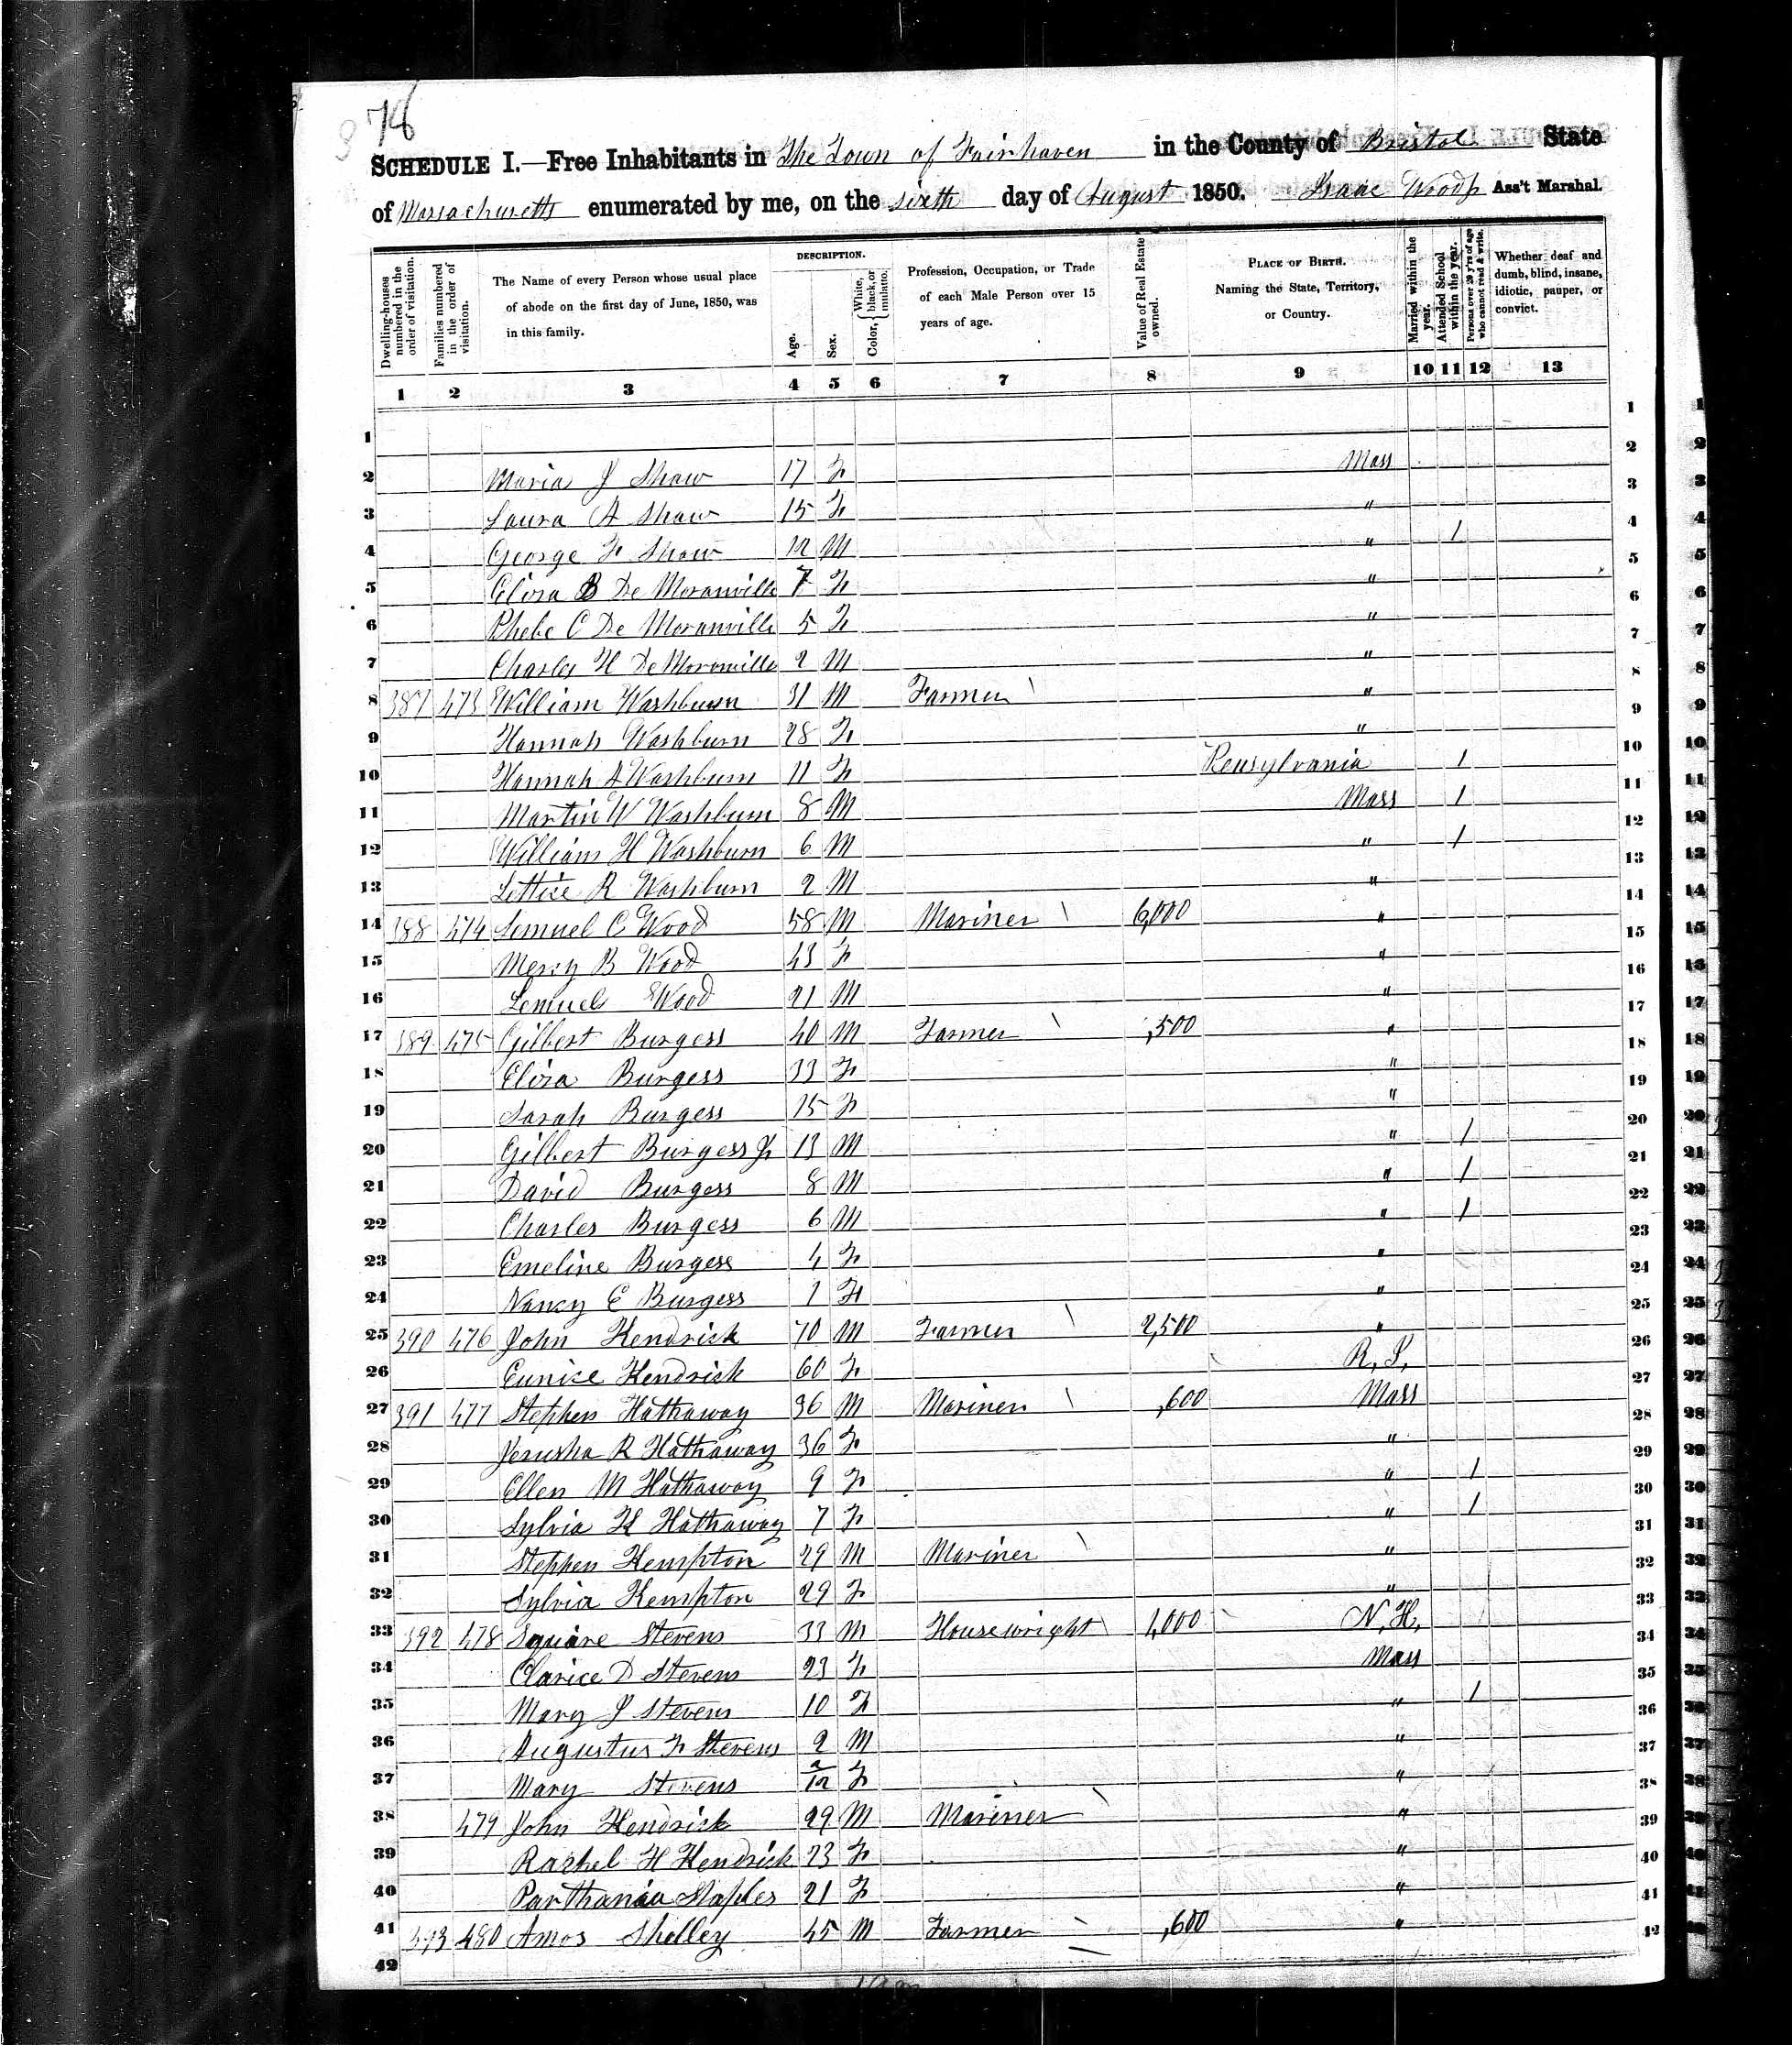 78
SCHEDULE I.—Free Inhabitants in The Town of Fairhaven in the County of Bristol State
of Massachusetts enumerated by me, on the sixth day of August 1850. Isaac Wood Ass't Marshal.
Dwelling-houses numbered in the order of visitation.
Families numbered in the order of visitation.
The Name of every Person whose usual place of abode on the first day of June, 1850, was in this family.
DESCRIPTION.
Age.
Sex.
Color, { White, black, or mulatto.
Profession, Occupation, or Trade of each Male Person over 15 years of age.
Value of Real Estate owned.
PLACE OF BIRTH. Naming the State, Territory, or Country.
Married within the year.
Attended School within the year.
Persons over 20 y'rs of age who cannot read & write.
Whether deaf and dumb, blind, insane, idiotic, pauper, or convict.
1 2 3 4 5 6 7 8 9 10 11 12 13
1 1
2 Maria J Shaw 17 F Mass 2
3 Laura A Shaw 15 F " 3
4 George F Shaw 12 M " 1 4
5 Eliza B De Moranville 7 F " 5
6 Phebe C De Moranville 5 F " 6
7 Charles H De Moranville 2 M " 7
8 387 473 William Washburn 31 M Farmer " 8
9 Hannah Washburn 28 F " 9
10 Hannah A Washburn 11 F Pensylvania 1 10
11 Martin W Washburn 8 M Mass 1 11
12 William H Washburn 6 M " 1 12
13 Lettice R Washburn 2 M " 13
14 388 474 Lemuel C Wood 58 M Mariner 6,000 " 14
15 Mercy B Wood 43 F " 15
16 Lemuel Wood 21 M " 16
17 389 475 Gilbert Burgess 40 M Farmer ,500 " 17
18 Eliza Burgess 33 F " 18
19 Sarah Burgess 15 F " 19
20 Gilbert Burgess Jr 13 M " 1 20
21 David Burgess 8 M " 1 21
22 Charles Burgess 6 M " 1 22
23 Emeline Burgess 4 F " 23
24 Nancy E Burgess 1 F " 24
25 390 476 John Kendrick 70 M Farmer 2,500 " 25
26 Eunice Kendrick 60 F R, I, 26
27 391 477 Stephen Hathaway 36 M Mariner ,600 Mass 27
28 Jerusha R Hathaway 36 F " 28
29 Ellen M Hathaway 9 F " 1 29
30 Sylvia K Hathaway 7 F " 1 30
31 Stephen Kempton 29 M Mariner " 31
32 Sylvia Kempton 29 F " 32
33 392 478 Squire Stevens 33 M Housewright 1,000 N, H, 33
34 Clarice D Stevens 23 F Mass 34
35 Mary J Stevens 10 F " 1 35
36 Augustus F Stevens 2 M " 36
37 Mary Stevens 2/12 F " 37
38 479 John Kendrick 29 M Mariner " 38
39 Rachel H Kendrick 23 F " 39
40 Parthania Staples 21 F " 40
41 393 480 Amos Shelley 45 M Farmer ,600 " 41
42 42